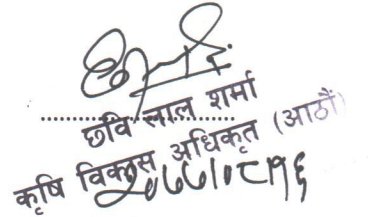 छवि लाल शर्मा
कृषि विकास अधिकृत (आठौं)
२०७७/०८/१६